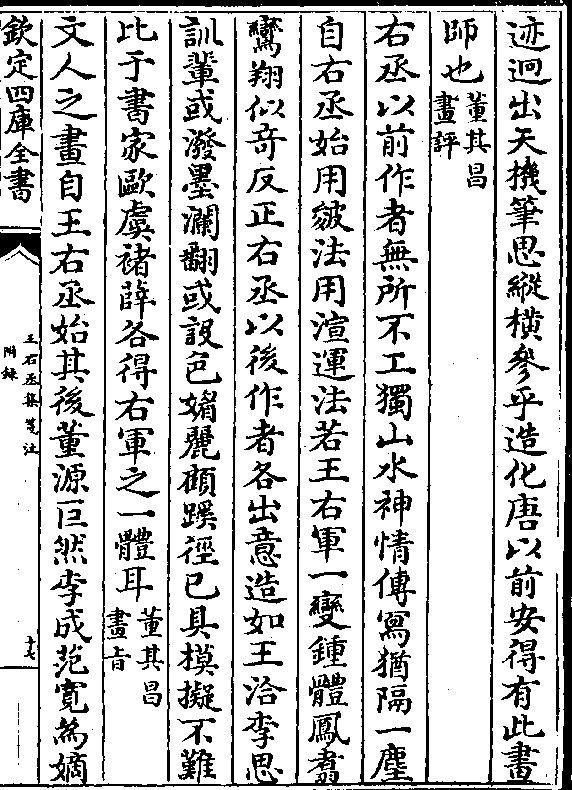 迹迥出天機筆思縱橫參乎造化唐以前安得有此畫
師也董其昌
畫評
右丞以前作者無所不工獨山水神情傳寫猶隔一塵
自右丞始用皴法用渲運法若王右軍一變鍾體鳳翥
鸞翔似竒反正右丞以後作者各出意造如王洽李思
訓輩或潑墨瀾翻或設色媚麗顧蹊徑已具模擬不難
比于書家歐虞褚薛各得右軍之一體耳董其昌
畫旨
文人之畫自王右丞始其後董源巨然李成范寛為嫡
欽定四庫全書
王右丞集箋注
附録
十七